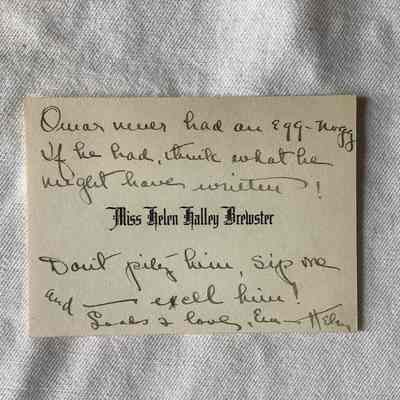 Omar never had an Egg-nogg
If he had, think what he
might have written!
Miss Helen Halley Brewster
Don't pity him, sip me
and — excell him!
Loads & love, Helen